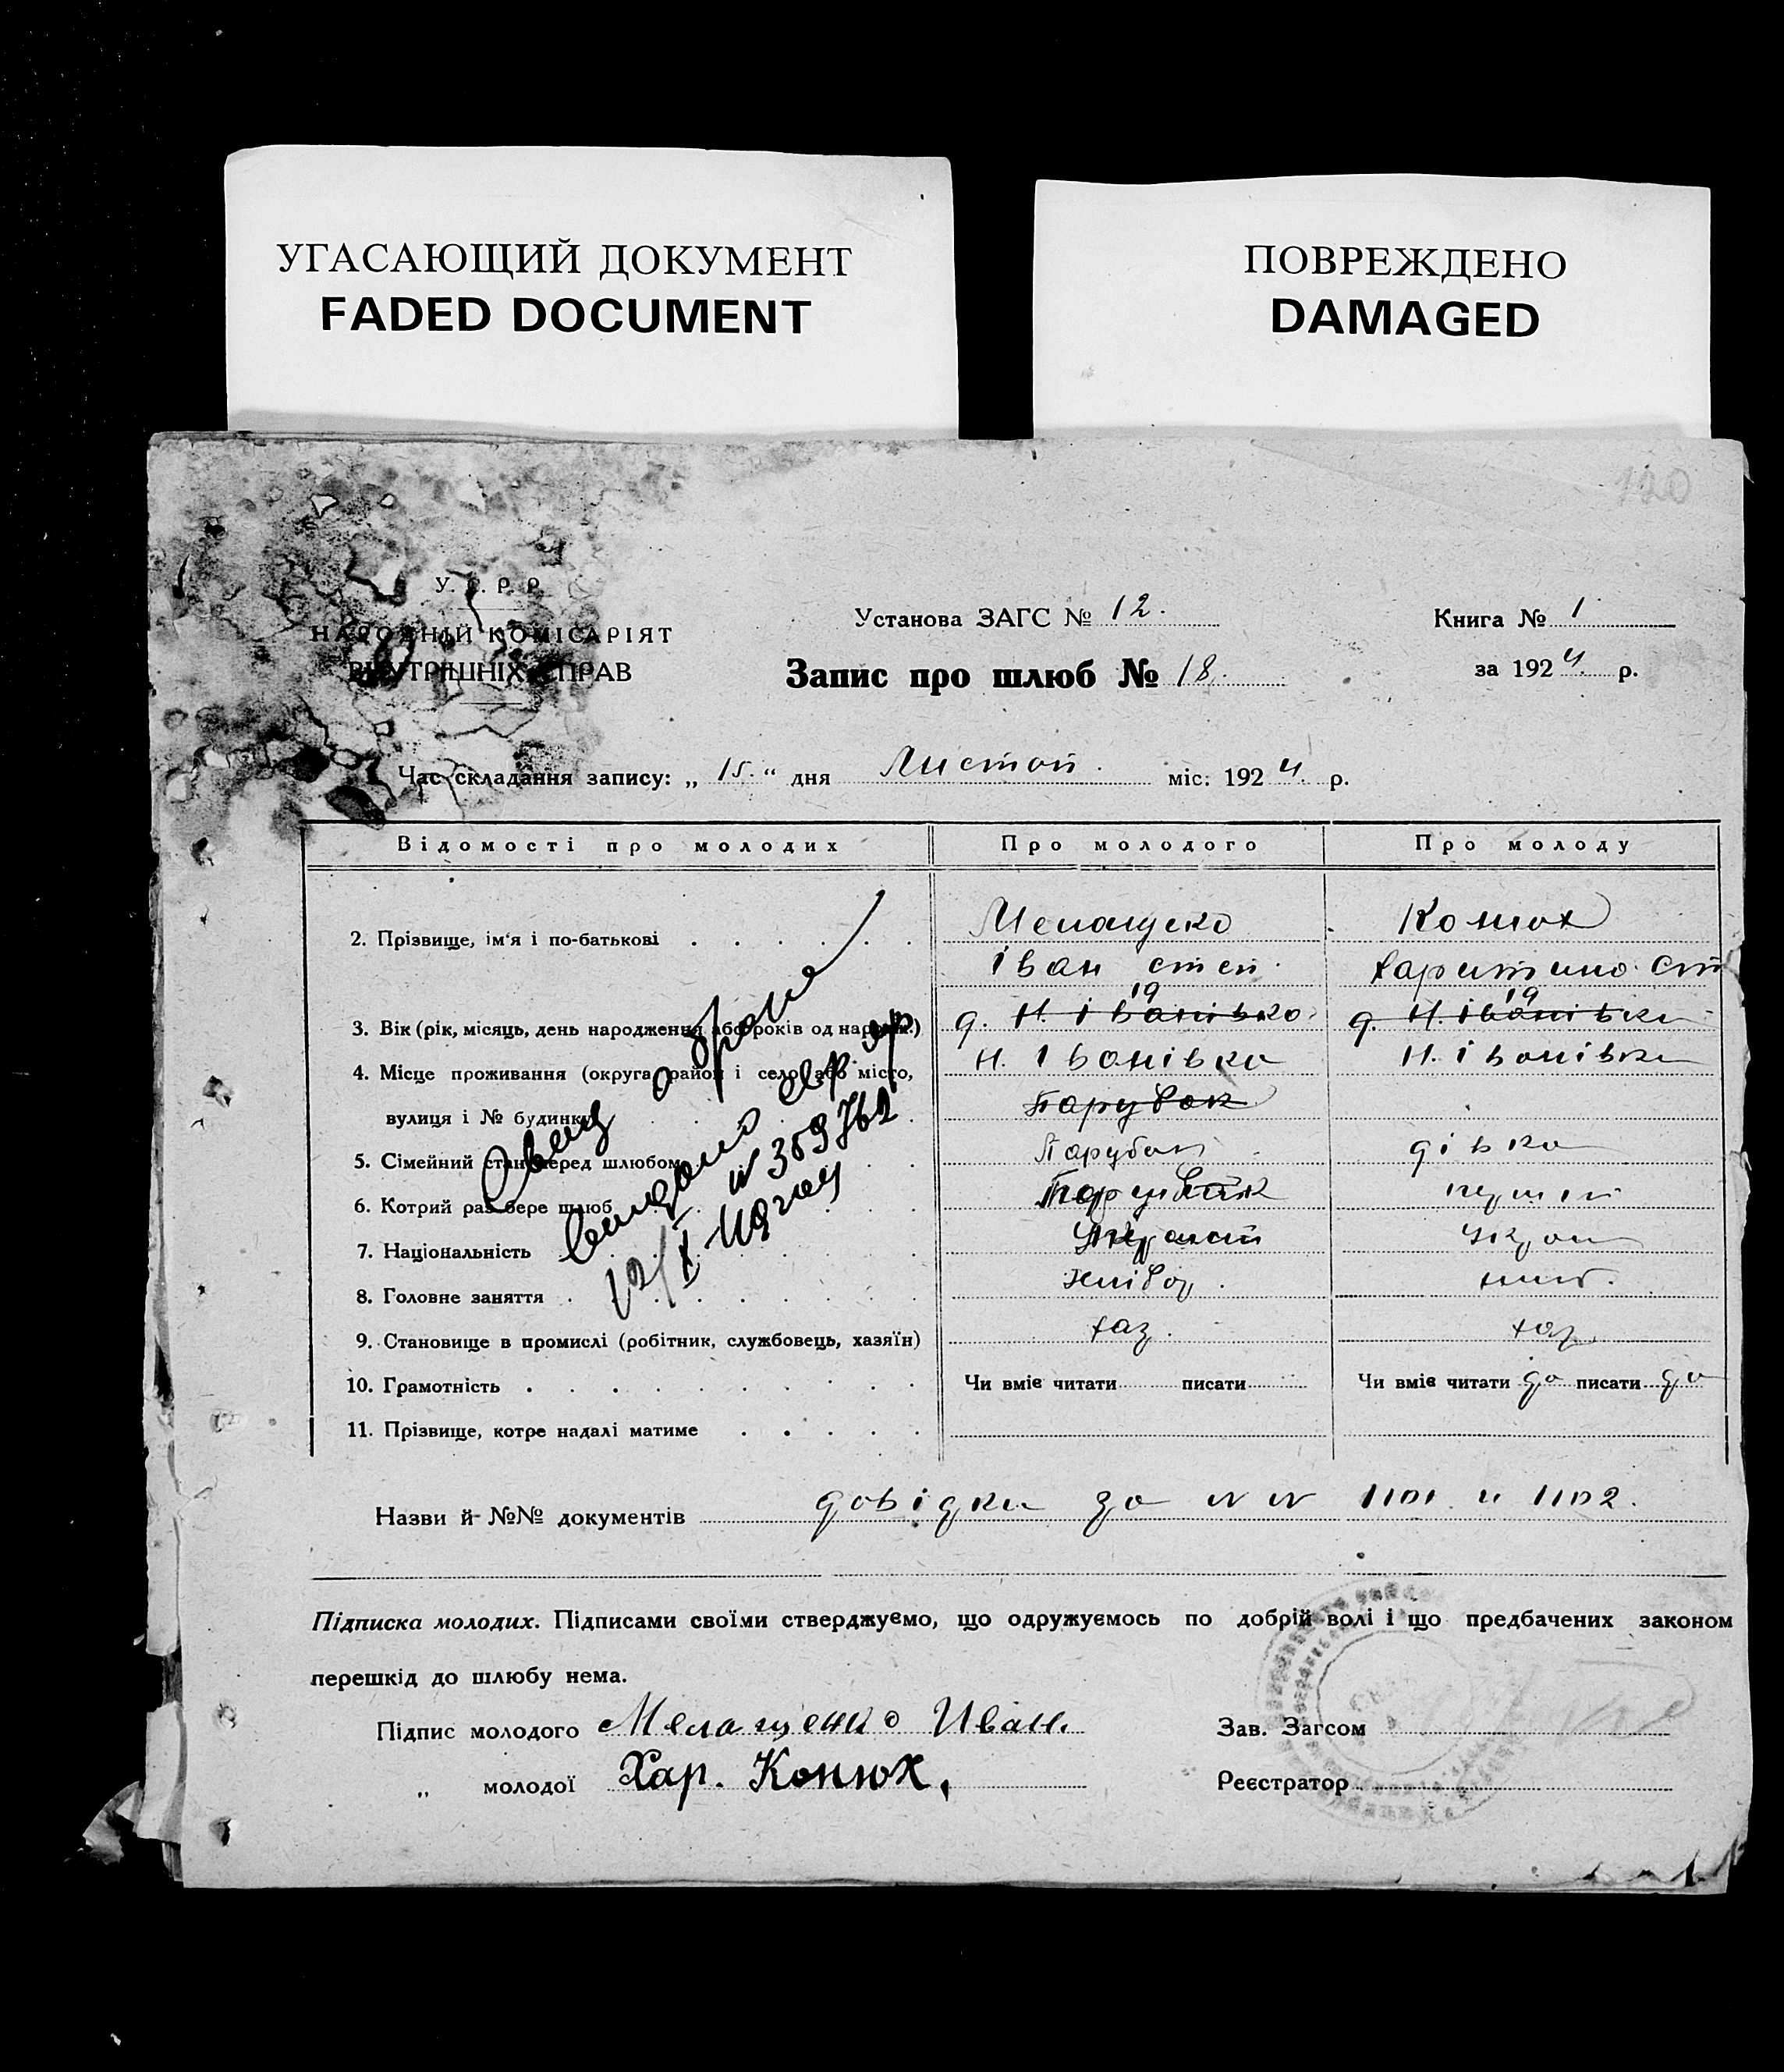 УГАСАЮЩИЙ ДОКУМЕНТ
FADED DOCUMENT
ПОВРЕЖДЕНО
DAMAGED
120
У. С. Р. Р.
НАРОДНІЙ КОМІСАРІЯТ
ВНУТРІШНІХ СПРАВ
Установа ЗАГС № 12.
Книга № 1
Запис про шлюб № 18.
за 1924 р.
Час складання запису: „ 15. “ дня Листоп. міс. 1924 р.
Відомості про молодих Про молодого Про молоду
2. Прізвище, ім'я і по-батькові
Конюх
Іван степ.
3. Вік (рік, місяць, день народження або років од народж.) 19 19
д. Н. Іванівка д. Н. Іванівка
4. Місце проживання (округа, район і село, або місто, Н. Іванівка Н. Іванівка
вулиця і № будинку) Парубок
5. Сімейний стан перед шлюбом Парубок дівка
6. Котрий раз бере шлюб
7. Національність
8. Головне заняття
9. Становище в промислі (робітник, службовець, хазяїн) хаз. хаз.
10. Грамотність Чи вміє читати писати Чи вміє читати да писати да
11. Прізвище, котре надалі матиме
о браке
№ 359762
12/X
Назви й №№ документів довідки за № № 1101 и 1102.
Підписка молодих. Підписами своїми стверджуємо, що одружуємось по добрій волі і що предбачених законом
перешкід до шлюбу нема.
Підпис молодого Мелащенко Иван.
Зав. Загсом
„ молодої Хар. Конюх,
Реєстратор